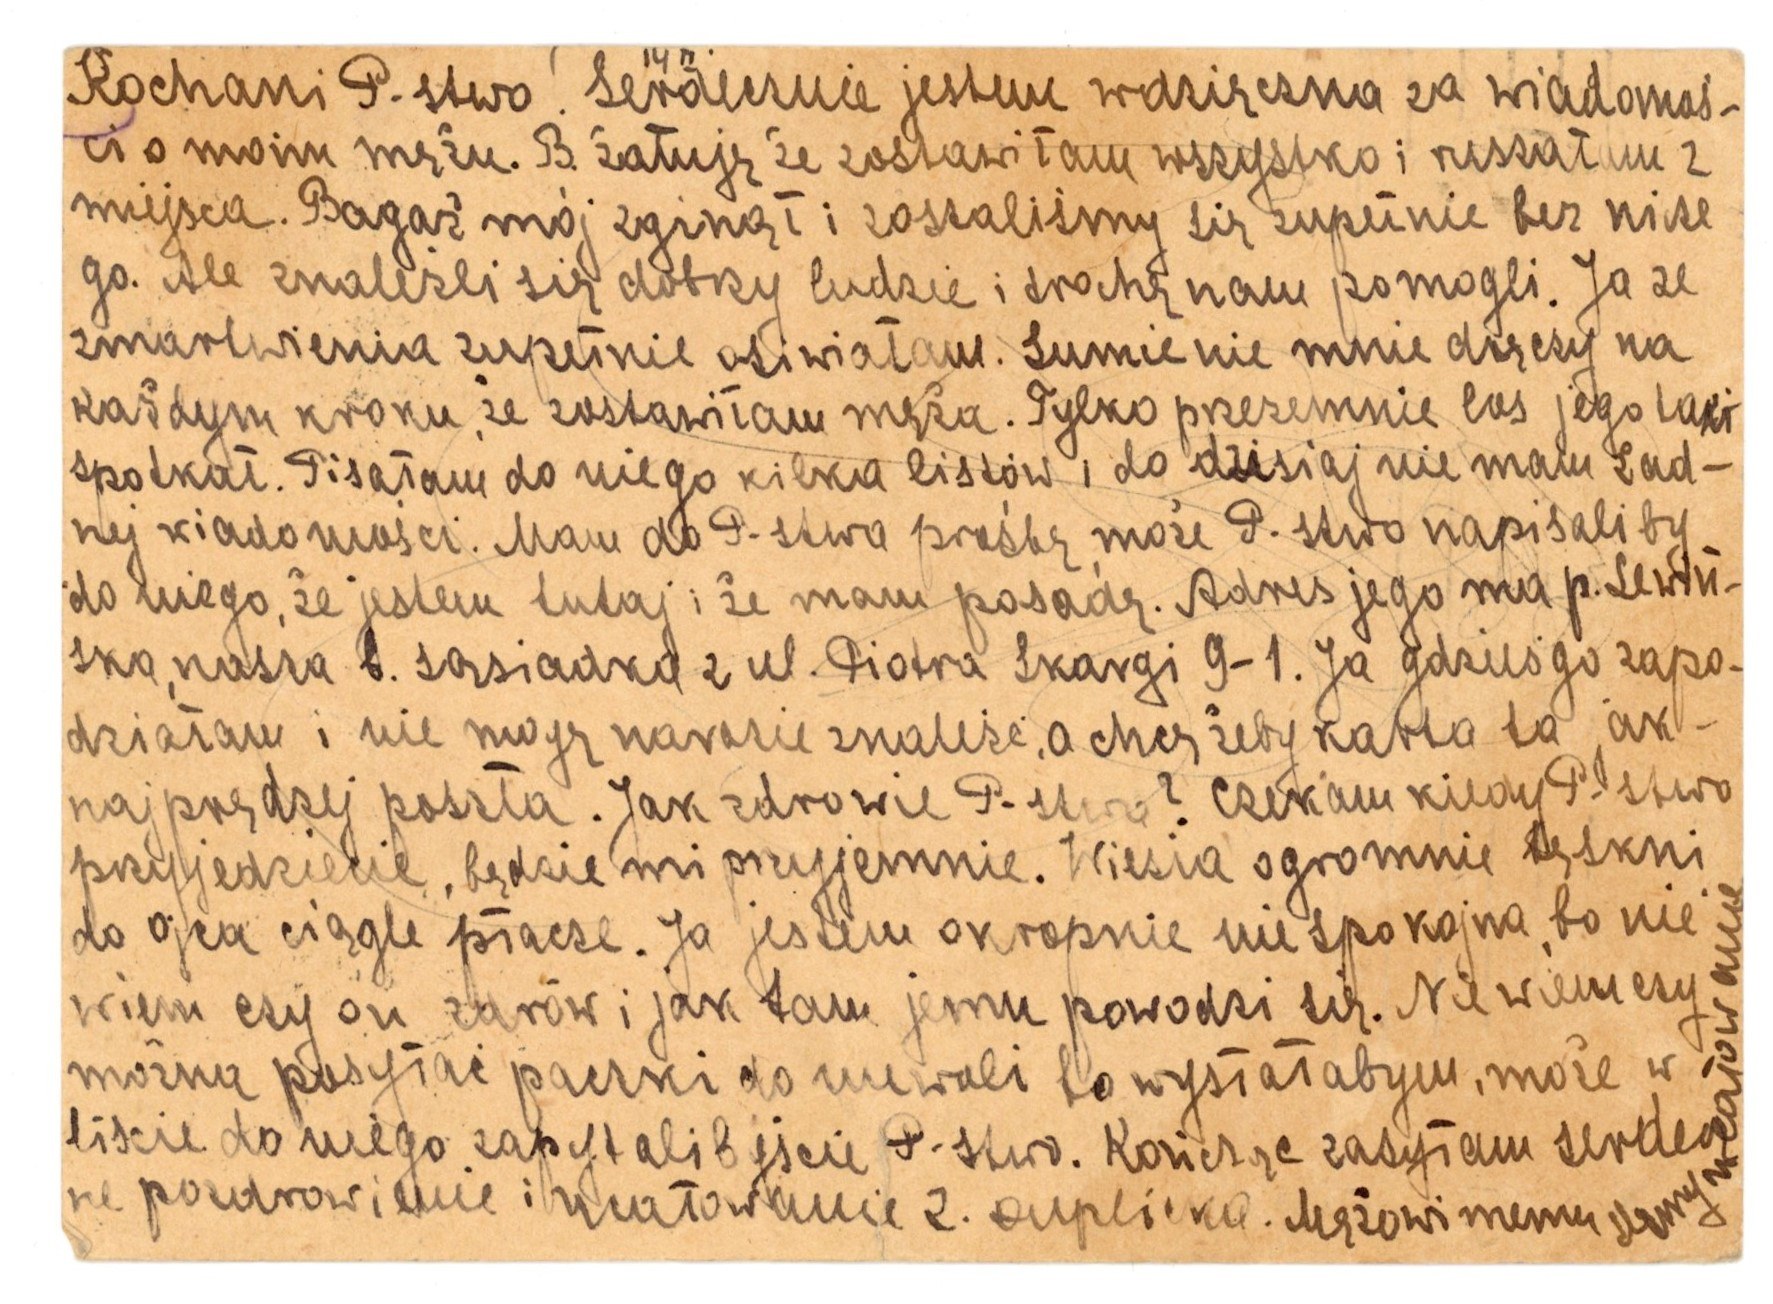 Kochani P-stwo! Serdecznie jestem wdzięczna za wiadomoś-
ci o moim mężu. B. żałuję że zostawiłam wszystko i ruszałam z
miejsca. Bagaż mój zginął i zostaliśmy się zupełnie bez nicze
go. Ale znaleźli się dobrzy ludzie i trochę nam pomogli. Ja ze
zmartwienia zupełnie osiwiałam. Sumienie mnie dręczy na
każdym kroku, że zostawiłam męża. Tylko przezemnie los jego taki
spotkał. Pisałam do niego kilka listów i do dzisiaj nie mam żad-
nej wiadomości. Mam do P-stwa prośbę, może P-stwo napisaliby
do niego, że jestem tutaj i że mam posadę. Adres jego ma p. Lewiń-
ska, nasza b. sąsiadka z ul. Piotra Skargi 9-1. Ja gdzieś go zapo-
działam i nie mogę narazie znaleźć, a chcę żeby karta ta jak-
najprędzej poszła. Jak zdrowie P-stwa? Czekam kiedy P-stwo
przyjedziecie, będzie mi przyjemnie. Wiesia ogromnie tęskni
do ojca ciągle płacze. Ja jestem okropnie niespokojna, bo nie
wiem czy on zdrów i jak tam jemu powodzi się. Nie wiem czy
można posyłać paczki do niewoli to wysłałabym, może w
liście do niego zapytalibyście P-stwo. Kończąc zasyłam serdecz
ne pozdrowienie i ucałowanie Z. Mężowi memu
ucałowanie